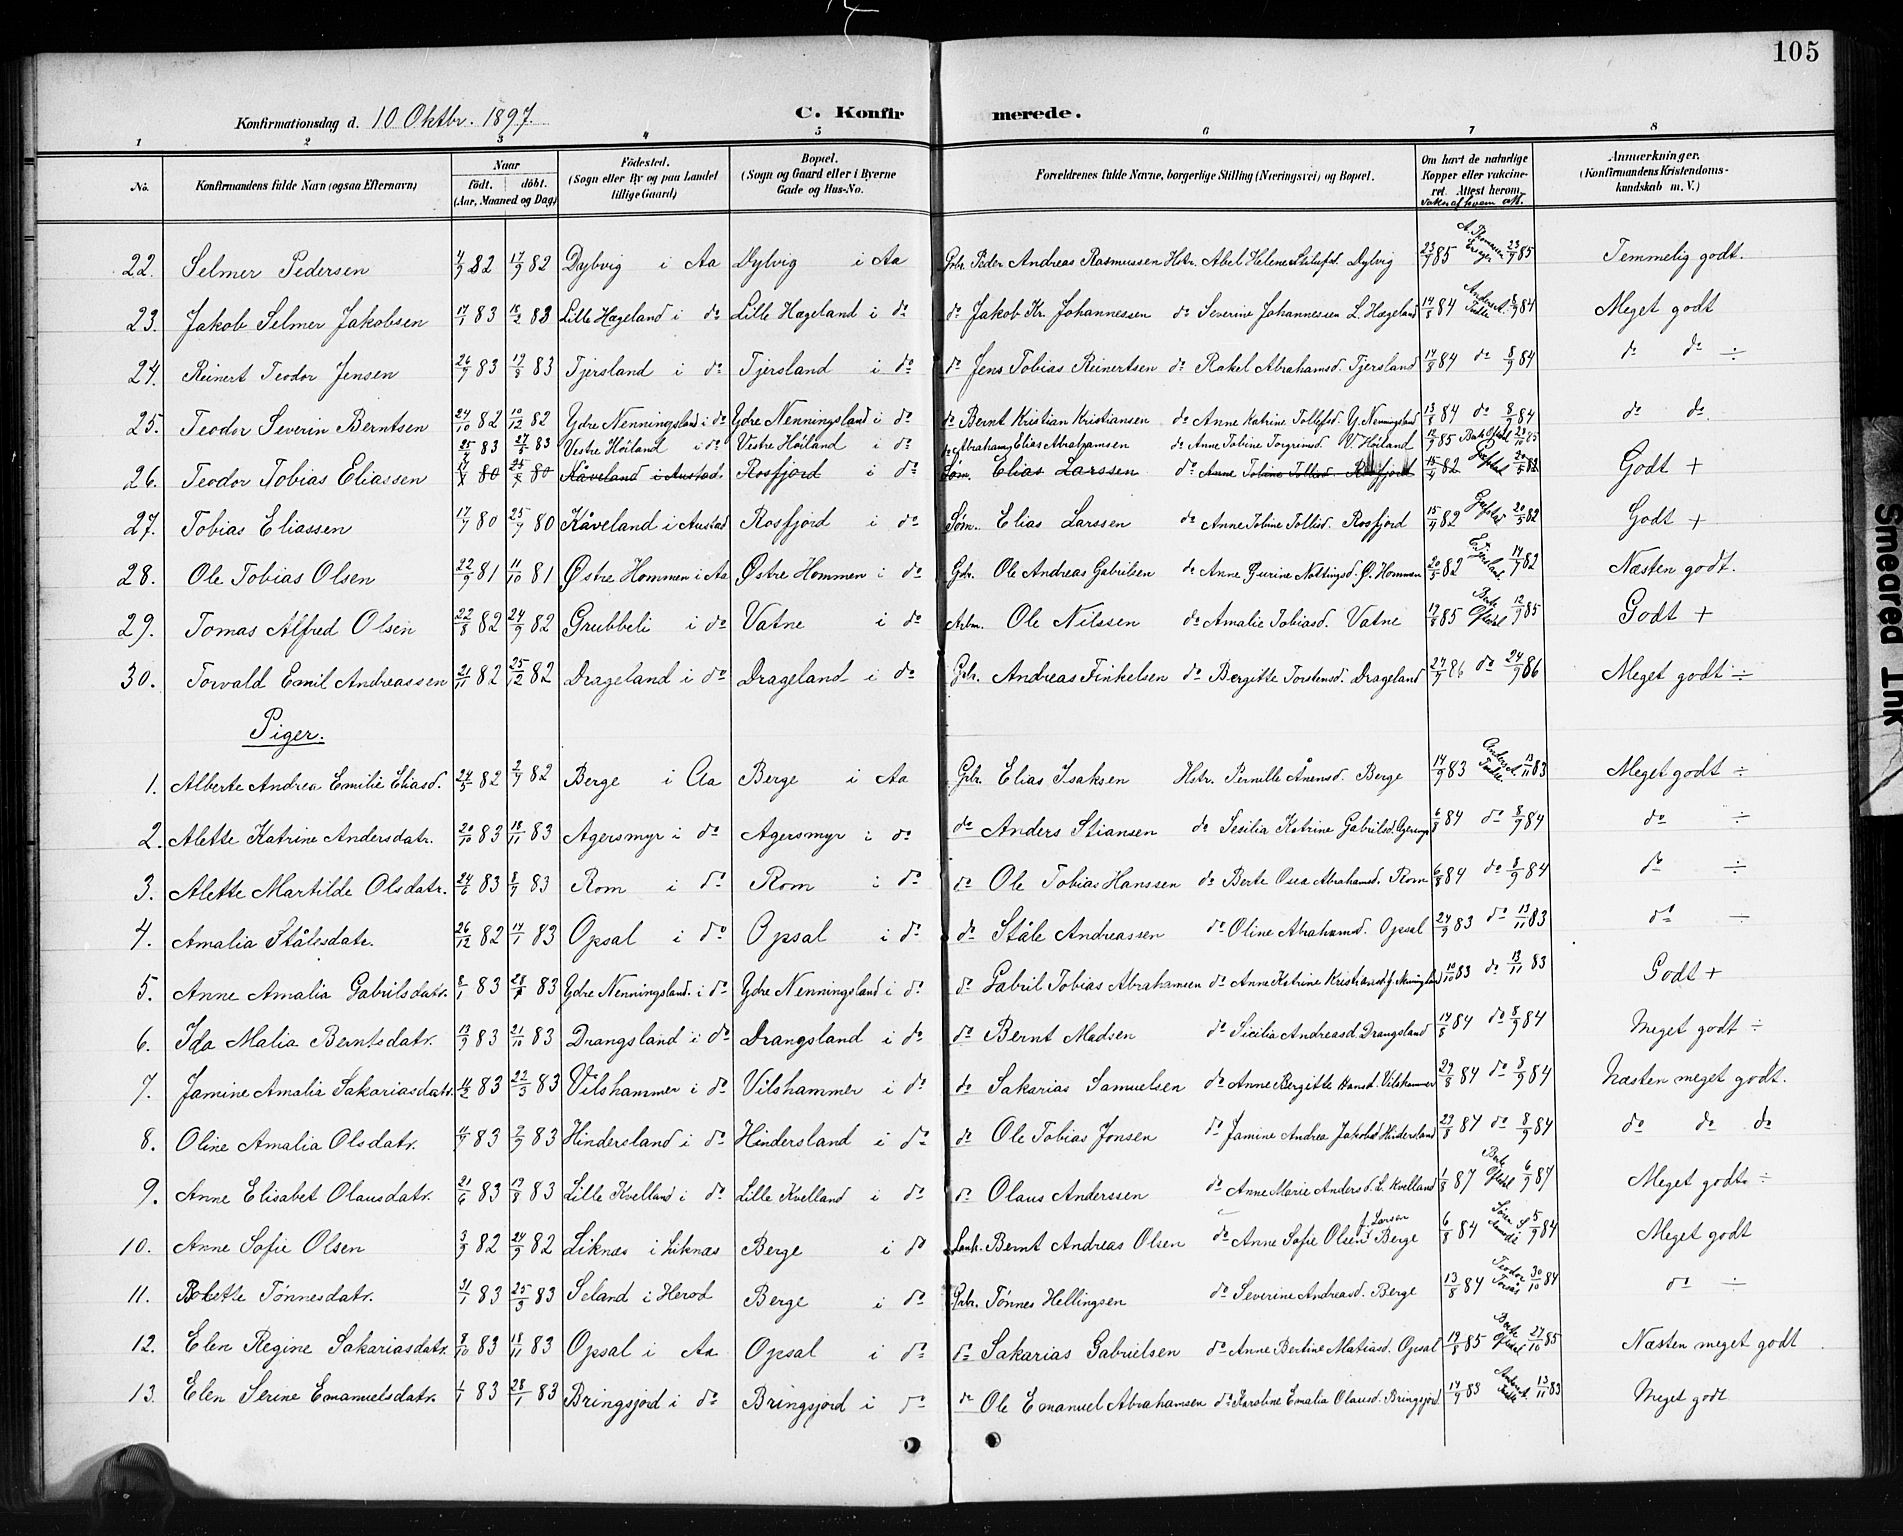 105
Konfirmationsdag d. 10 Oktbr. 1897.
C. Konfir merede.
1 2 3 4 5 6 7 8
No. Konfirmandens fulde Navn (ogsaa Efternavn) Naar födt. döbt. (Aar, Maaned og Dag) Födested. (Sogn eller By og paa Landet tillige Gaard) Bopæl. (Sogn og Gaard eller i Byerne Gade og Hus-No. Forældrenes fulde Navne, borgerlige Stilling (Næringsvei) og Bopæl. Om havt de naturlige Kopper eller vaccineret. Attest herom. Anmærkninger. (Konfirmandens Kristendomskundskab m. V.)
22. Selmer Pedersen 4/9 82 17/9 82 Dybvig i Aa Dybvig i Aa Gbr. Peder Andreas Rasmussen Hstr. Abel Helene Dybvig 23/9 85 23/9 85 Temmelig godt.
23. Jakob Selmer Jakobsen 17/1 83 18/2 83 Lille Hægeland i do Lille Hægeland i do do Jakob Kr. Johannessen do Severine Johannessen L. Hægeland 14/8 84 8/9 84 Meget godt
24. Reinert Teodor Jensen 26/7 83 19/8 83 Tjersland i do Tjersland i do do Jens Tobias Reinertsen do Rakel Abrahamsd. Tjersland 14/8 84 do 8/9 84 do do ÷
25. Teodor Severin Berntsen 24/10 82 10/12 82 Ydre Nenningsland i do Ydre Nenningsland i do do Bernt Kristian Kristiansen do Anne Katrine Tollefsd. Y. Nenningsland 13/8 84 do 8/9 84 do do
25/4 83 27/5 83 Vestre Höiland i do Vestre Höiland i do do Abraham Elias Abrahamsen do Anne Tobine Torgrimsd. V. Höiland
26. Teodor Tobias Eliassen 80 80 Kåveland i Austad. Rosfjord i do Söm. Elias Larssen do Anne Tobine Tollasd. Rosfjord 15/9 82 20/5 82 Godt +
27. Tobias Eliassen 17/7 80 25/7 80 Kåveland i Austad Rosfjord i do Söm. Elias Larssen do Anne Tobine Tollisd. Rosfjord 15/9 82 20/5 82 Godt +
28. Ole Tobias Olsen 22/9 81 11/10 81 Østre Hommen i Aa Østre Hommen i do Gbr. Ole Andreas Gabrilsen do Anne Gurine Ø. Hommen 20/5 82 14/7 82 Næsten godt.
29. Tomas Alfred Olsen 22/8 82 24/9 82 Grubbeli i do Vatne i do Arbm. Ole Nilssen do Amalie Tobiasd. Vatne 19/8 85 12/9 85 Godt +
30. Torvald Emil Andreassen 21/11 82 25/12 82 Drageland i do Drageland i do Gbr. Andreas Finkelsen do Bergitte Torstensd. Drageland 27/9 86 do 24/9 86 Meget godt ÷
Piger.
1. Alberte Andrea Emilie Eliasd. 24/5 82 2/7 82 Berge i Aa Berge i Aa Gbr. Elias Isaksen Hstr. Pernille Ånensd. Berge 14/9 83 13/11 83 Meget godt ÷
2. Alette Katrine Andersdatr. 20/10 83 18/11 83 Agersmyr i do Agersmyr i do do Anders Stiansen do Sesilia Katrine Gabrilsd. 6/8 84 do 8/9 84 do ÷
3. Alette Martilde Olsdatr. 24/6 83 8/7 83 Rom i do Rom i do do Ole Tobias Hanssen do Berte Osea Abrahamsd. Rom 6/8 84 do 8/9 84 do ÷
4. Amalia Stålesdatr. 26/12 82 14/1 83 Opsal i do Opsal i do do Ståle Andreassen do Oline Abrahamsd. Opsal 24/9 83 do 13/11 83 do ÷
5. Anne Amalia Gabrilsdatr. 8/1 83 28/1 83 Ydre Nenningsland. i do Ydre Nenningsland i do do Gabril Tobias Abrahamsen do Anne Katrine Kristiansd. 10/10 83 do 13/11 83 Godt +
6. Ida Malia Berntsdatr. 13/9 83 21/10 83 Drangsland i do Drangsland i do do Bernt Madsen do Sicilia Andreasd. Drangsland 14/8 84 do 8/9 84 Meget godt ÷
7. Jamine Amalia Sakariasdatr. 14/2 83 22/3 83 Vilshammer i do Vilshammer i do do Sakarias Samuelsen do Anne Bergitte Hansd. Vilshammer 29/8 84 do 8/9 84 Næsten meget godt.
8. Oline Amalia Olsdatr. 11/7 83 2/9 83 Hindersland i do Hindersland i do do Ole Tobias Jonsen do Jamine Andrea Jakobsd. Hindersland 29/8 84 do 8/9 84 do do do
9. Anne Elisabet Olausdatr. 21/6 83 19/8 83 Lille Kvelland i do Lille Kvelland i do do Olaus Anderssen do Anne Marie Andersd. L. Kvelland 1/8 87 6/9 87 Meget godt. ÷
10. Anne Sofie Olsen 3/9 82 24/9 82 Liknes i Liknæs Berge i do Bernt Andreas Olsen do Anne Sofie Olsen f. Larsen Berge 6/8 84 5/9 84 Meget godt
11. Bolette Tönnesdatr. 31/1 83 25/3 83 Seland i Herod Berge i do Gbr. Tönnes Hellingsen do Severine Andreasd. Berge 13/8 84 30/10 84 do ÷
12. Elen Regine Sakariasdatr. 8/10 83 18/11 83 Opsal i Aa Opsal i do do Sakarias Gabrielsen do Anne Bertine Matiasd. Opsal 19/8 85 27/10 85 Næsten meget godt
13. Elen Serine Emanuelsdatr. 1/1 83 28/1 83 Bringsjord i do Bringsjord i do do Ole Emanuel Abrahamsen do Karoline Emalia Olausd. Bringsjord 14/9 83 13/11 83 Meget godt
Smeared Ink